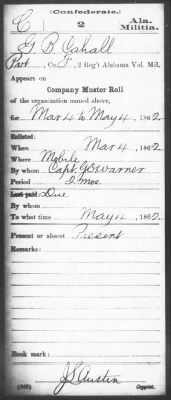 (Confederate.)
C 2 Ala. Militia.
G B Cahall
Pvt, Co. F, 2 Reg't Alabama Vol. Mil.
Appears on
Company Muster Roll
of the organization named above,
for Mar 4 to May 4, 1862
Enlisted:
When Mar 4, 1862
Where Mobile
By whom Capt. G D Warner
Period 2 mos
Last paid: Due
By whom
To what time May 4, 1862
Present or absent Present
Remarks:
Book mark:
J S Austin
(642) Copyist.